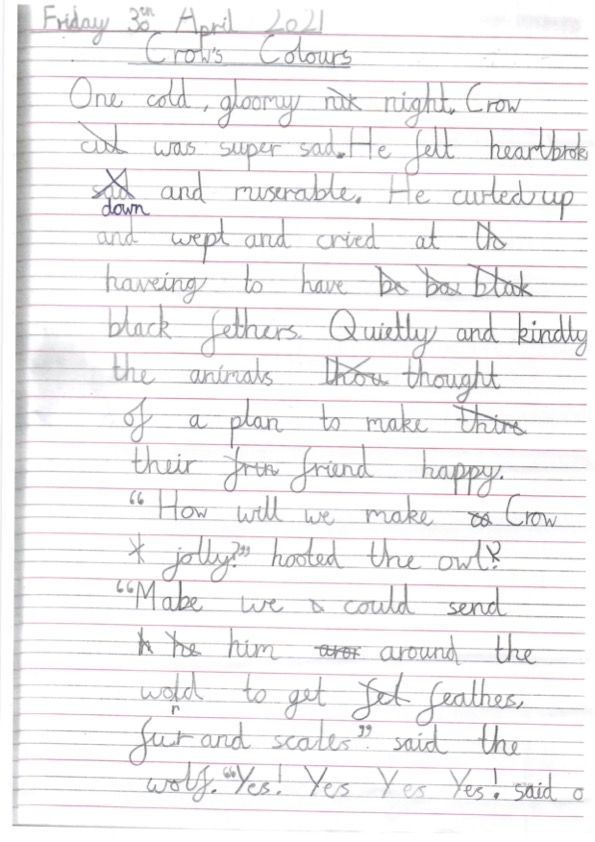 Friday 30th April 2021
Crow's Colours
One cold, gloomy nix night, Crow
cut was super sad. He felt heartbrok
sad and miserable. He curled up
down
and wept and cried at th
haveing to have be bax blak
black fethers. Quietly and kindly
the animals thou thought
of a plan to make thire
their frin friend happy.
“How will we make co Crow
jolly?” hooted the owl.
“Mabe we could send
h he him aror around the
wold to get fet feathes,
r
fur and scales”. said the
wolf. “Yes! Yes Yes Yes! said o